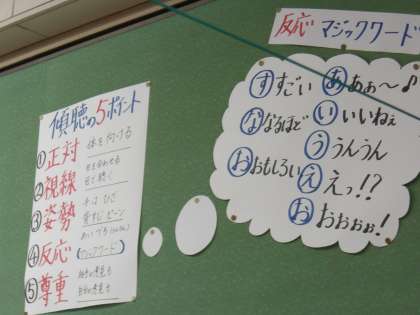 傾聴の5ポイント
①正対 体を向ける
②視線 目を合わせる
目で聴く
③姿勢 手はひざ
背すじピーン
④反応 あいづち
(マジックワード)
⑤尊重 相手の意見も
自分の意見も
反応 マジックワード
すすごい
ななるほど
おおもしろい
ああぁ~♪
いいいねぇ
ううんうん
ええっ!?
おおおぉ!